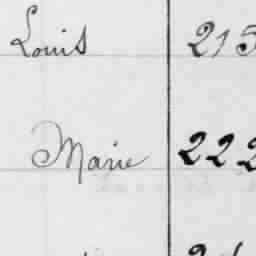 Louis 215
Marie 222